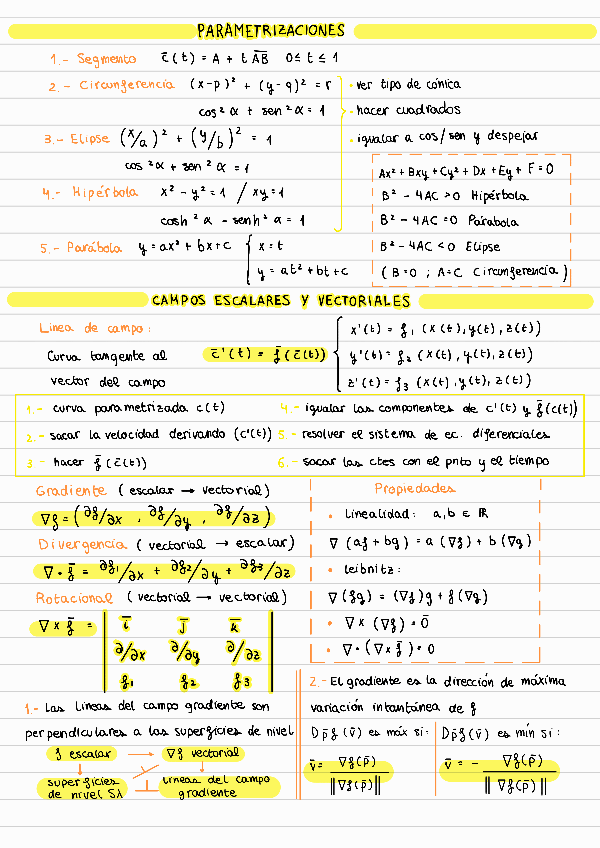 PARAMETRIZACIONES
1.- Segmento c̄(t) = A + t AB 0 ≤ t ≤ 1
2.- Circunferencia (x-p)² + (y-q)² = r · ver tipo de cónica
cos² α + sen² α = 1 · hacer cuadrados
3.- Elipse (x/a)² + (y/b)² = 1 · igualar a cos/sen y despejar
cos ²α + sen ² α = 1
4.- Hipérbola x² - y² = 1 / xy = 1
cosh ² α - senh ² α = 1
5.- Parábola y = ax² + bx + c { x = t
y = at² + bt + c
Ax² + Bxy + Cy² + Dx + Ey + F = 0
B² - 4AC > 0 Hipérbola
B² - 4AC = 0 Parabola
B² - 4AC < 0 Elipse
( B=0 ; A=C Circunferencia )
CAMPOS ESCALARES Y VECTORIALES
Linea de campo:
Curva tangente al
vector del campo
c̄'(t) = f̄(c̄(t))
x'(t) = f₁ (x(t), y(t), z(t))
y'(t) = f₂ (x(t), y(t), z(t))
z'(t) = f₃ (x(t), y(t), z(t))
1.- curva parametrizada c(t)
2.- sacar la velocidad derivando (c'(t))
3- hacer f̄(c̄(t))
4.- igualar las componentes de c'(t) y f̄(c(t))
5.- resolver el sistema de ec. diferenciales
6.- sacar las ctes con el pnto y el tiempo
Gradiente ( escalar → vectorial )
∇f = (∂f/∂x , ∂f/∂y , ∂f/∂z)
Divergencia ( vectorial → escalar)
∇ • f̄ = ∂f₁/∂x + ∂f₂/∂y + ∂f₃/∂z
Rotacional ( vectorial → vectorial )
∇ x f̄ = | ī j̄ k̄ |
| ∂/∂x ∂/∂y ∂/∂z |
| f₁ f₂ f₃ |
Propiedades
• Linealidad: a,b ∈ ℝ
∇ (af + bg) = a (∇f) + b (∇g)
• Leibnitz:
∇ (fg) = (∇f)g + f(∇g)
• ∇ x (∇f) = 0̄
• ∇ · (∇ x f̄) = 0
1.- Las líneas del campo gradiente son
perpendiculares a las superficies de nivel
f escalar → ∇f vectorial
superficies de nivel Sλ
líneas del campo gradiente
2.- El gradiente es la dirección de máxima
variación intantánea de f
Dp̄f(v̄) es máx si:
v̄ = ∇f(p̄) / ‖∇f(p̄)‖
Dp̄f(v̄) es mín si:
v̄ = - ∇f(p̄) / ‖∇f(p̄)‖